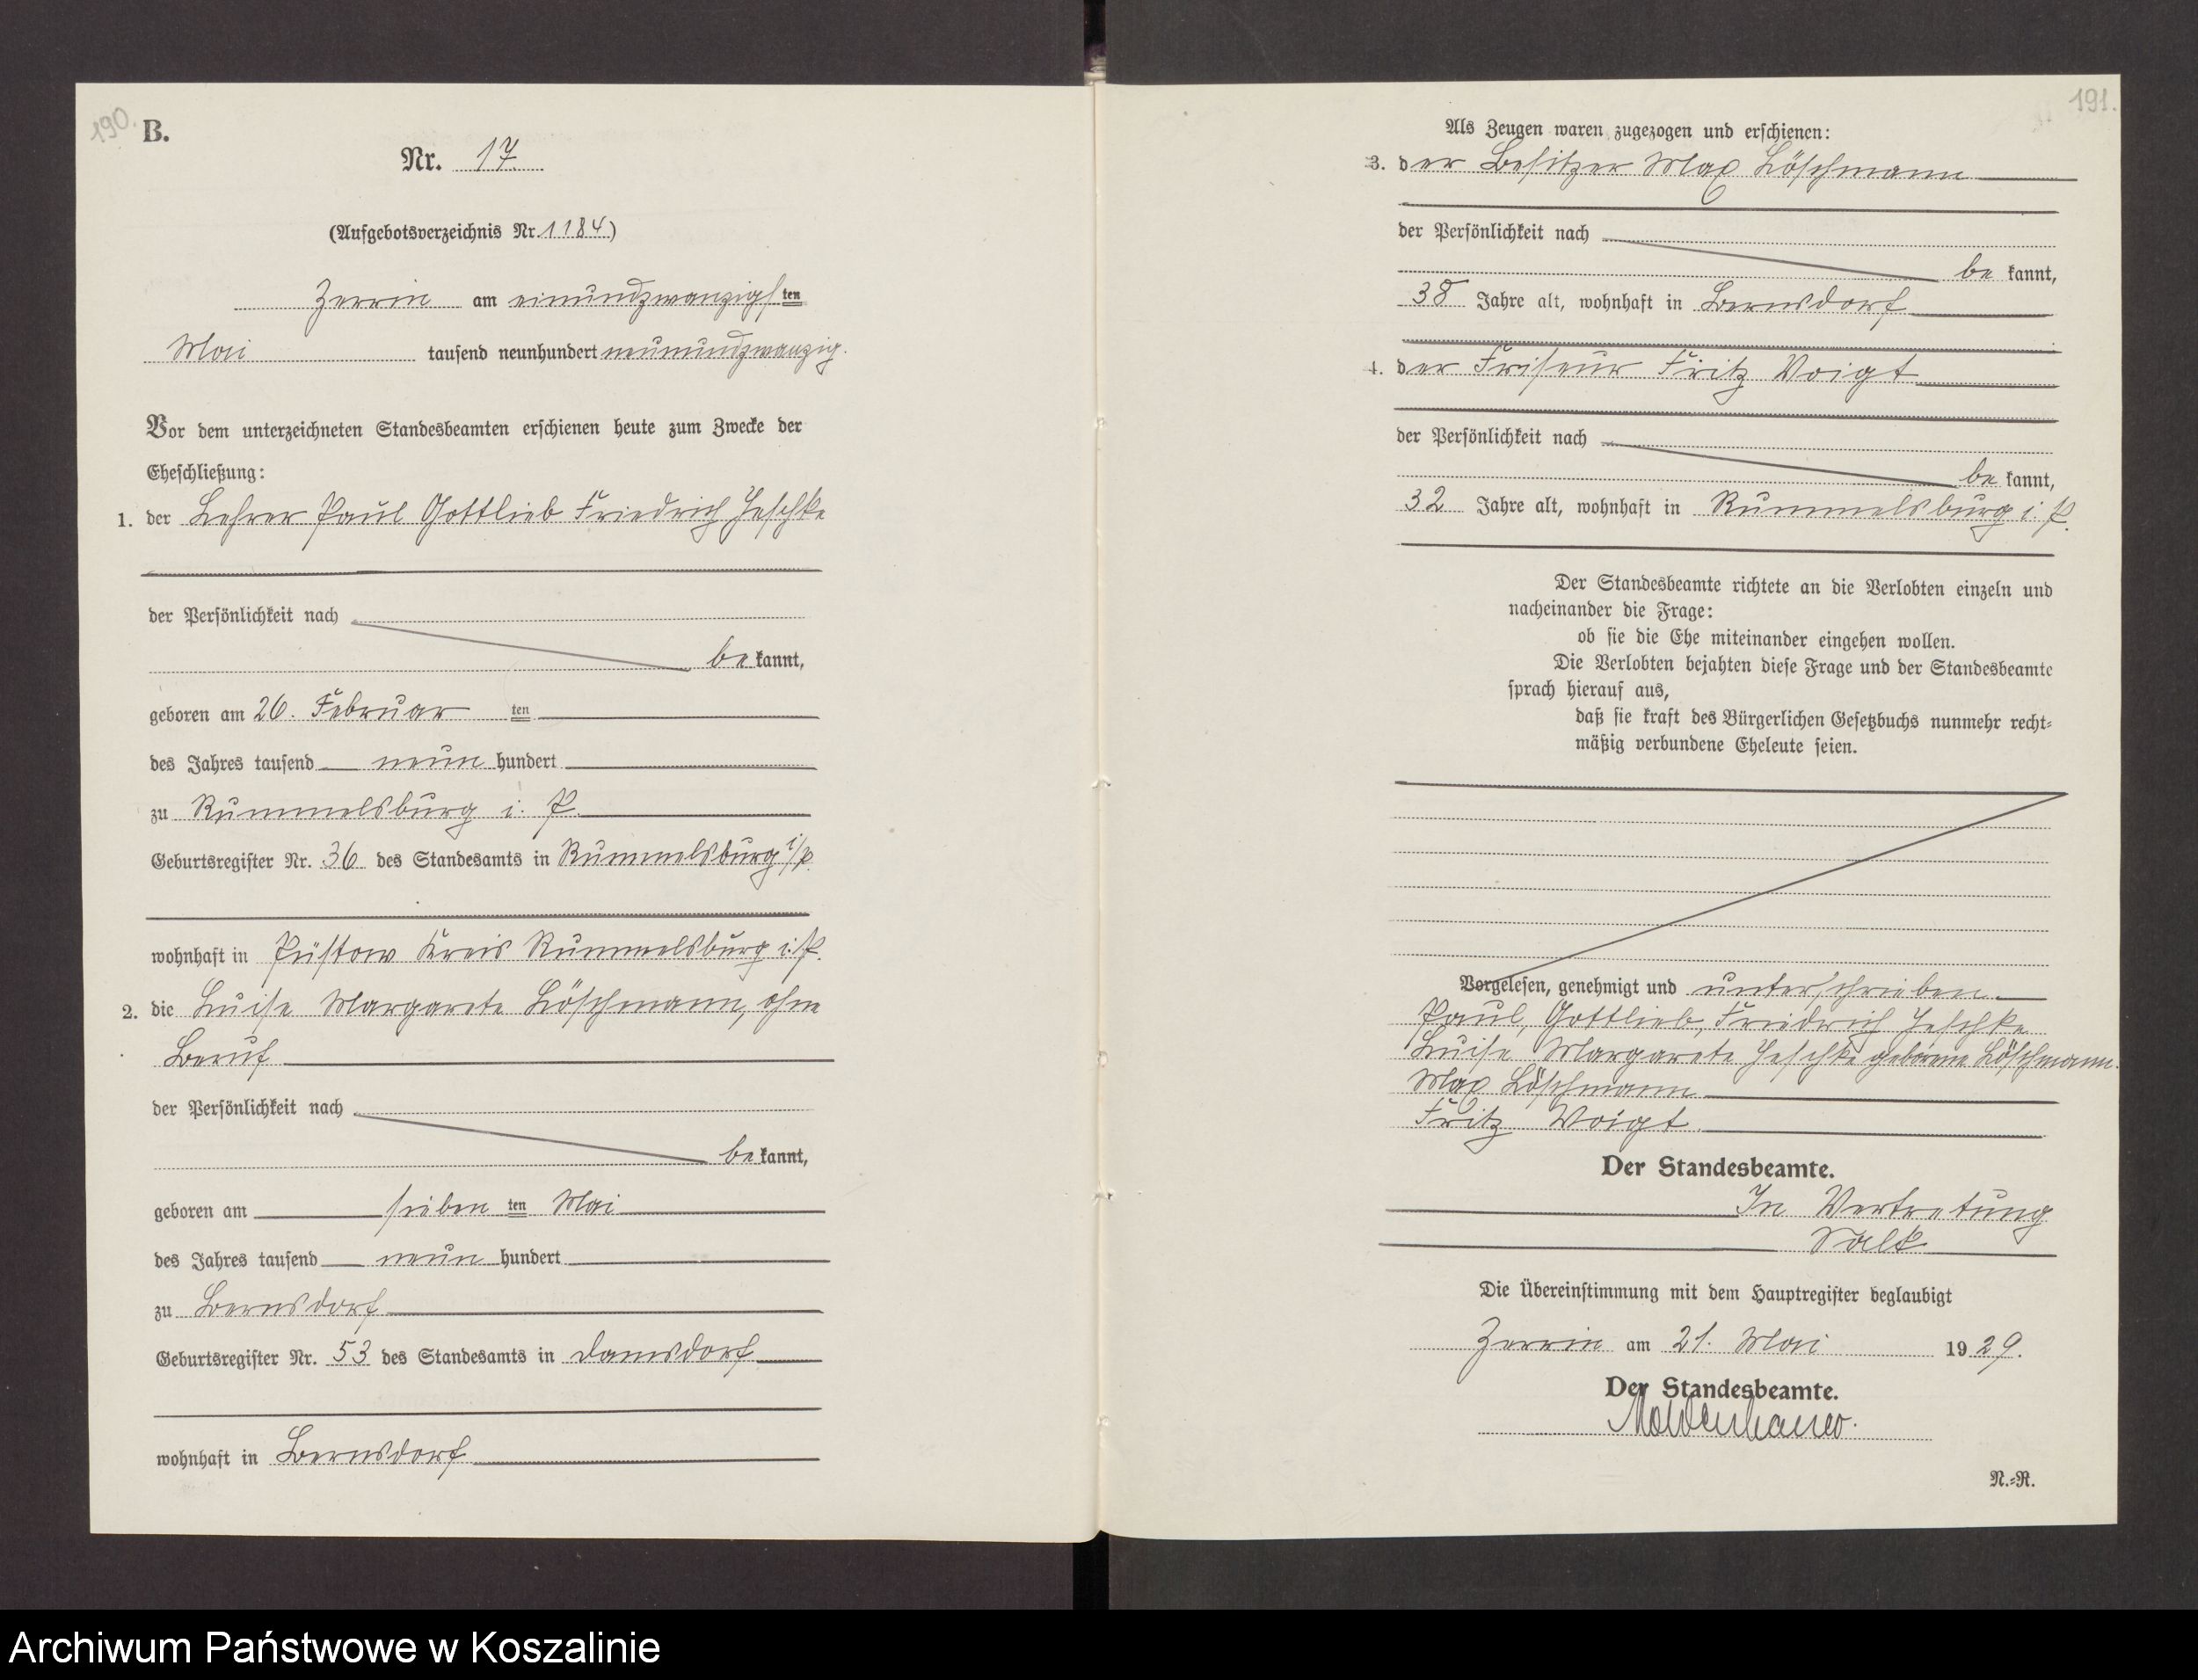 190.
B.
Nr. 17.
(Aufgebotsverzeichnis Nr. 1184)
Zerrin am einundzwanzigsten
Mai tausend neunhundert neunundzwanzig.
Vor dem unterzeichneten Standesbeamten erschienen heute zum Zwecke der
Eheschließung:
1. der Lehrer Paul Gottlieb Friedrich Jeschke
der Persönlichkeit nach
bekannt,
geboren am 26. Februar ten
des Jahres tausend neun hundert
zu Rummelsburg i. P.
Geburtsregister Nr. 36 des Standesamts in Rummelsburg i/P.
wohnhaft in Püstow Kreis Rummelsburg i. P.
2. die Luise Margarete Löschmann, ohne
Beruf
der Persönlichkeit nach
bekannt,
geboren am sieben ten Mai
des Jahres tausend neun hundert
zu Bernsdorf
Geburtsregister Nr. 53 des Standesamts in Damsdorf
wohnhaft in Bernsdorf
191.
Als Zeugen waren zugezogen und erschienen:
3. der Besitzer Max Löschmann
der Persönlichkeit nach
bekannt,
38 Jahre alt, wohnhaft in Bernsdorf
4. der Friseur Fritz Voigt
der Persönlichkeit nach
bekannt,
32 Jahre alt, wohnhaft in Rummelsburg i. P.
Der Standesbeamte richtete an die Verlobten einzeln und
nacheinander die Frage:
ob sie die Ehe miteinander eingehen wollen.
Die Verlobten bejahten diese Frage und der Standesbeamte
sprach hierauf aus,
daß sie kraft des Bürgerlichen Gesetzbuchs nunmehr recht-
mäßig verbundene Eheleute seien.
Vorgelesen, genehmigt und unterschrieben
Paul, Gottlieb, Friedrich Jeschke
Luise Margarete Jeschke geborene Löschmann.
Max Löschmann
Fritz Voigt
Der Standesbeamte.
In Vertretung
Die Übereinstimmung mit dem Hauptregister beglaubigt
Zerrin am 21. Mai 1929.
Der Standesbeamte.
Moldenhauer.
N.-R.
Archiwum Państwowe w Koszalinie